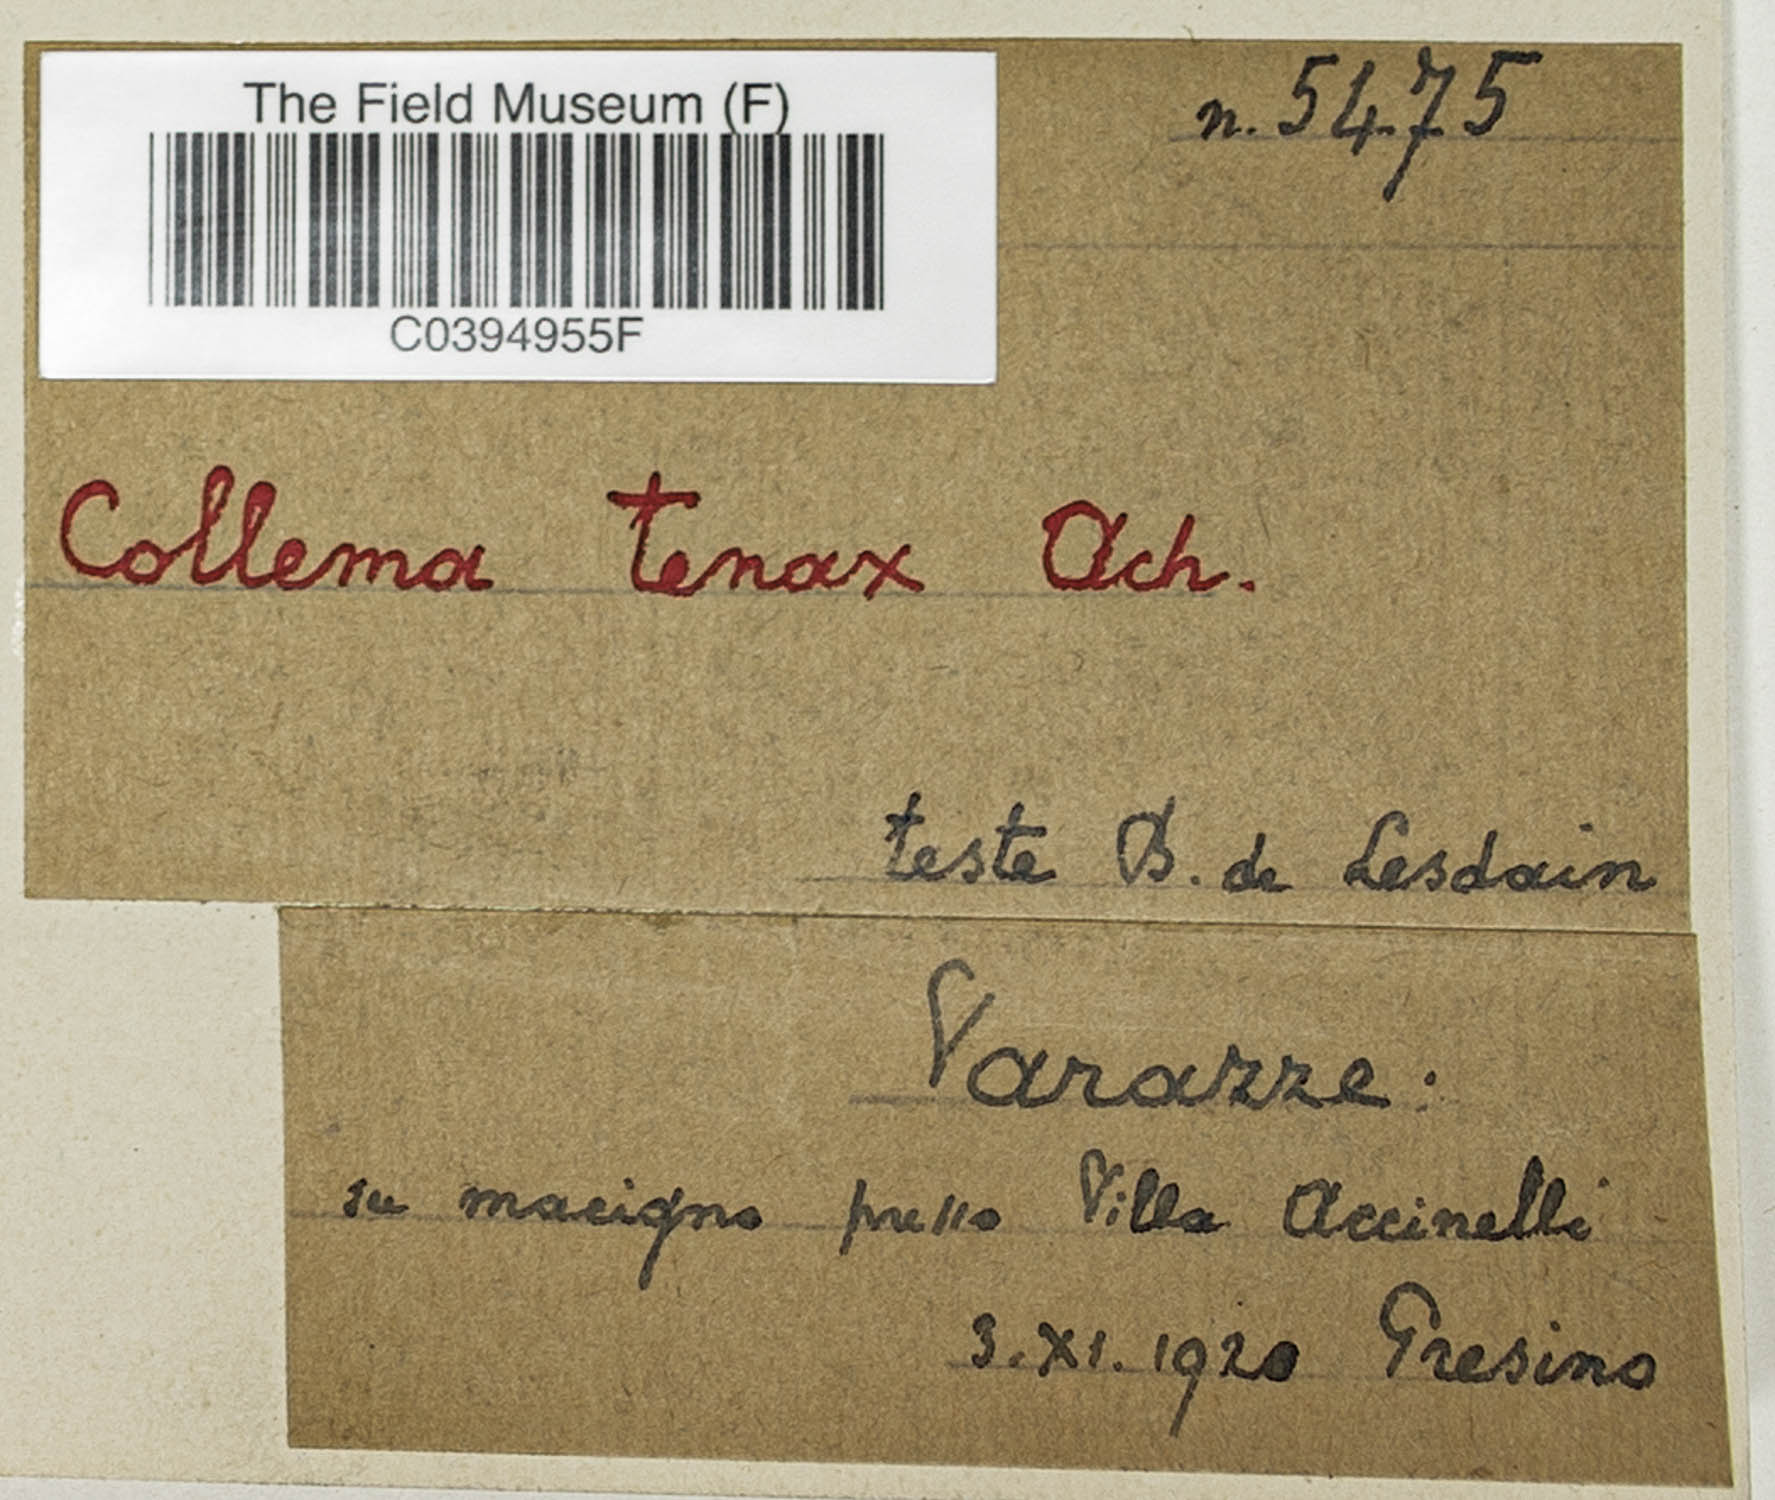 The Field Museum (F)
C0394955F
n. 5475
Collema tenax Ach.
teste B. de Lesdain
Varazze:
su macigno presso Villa Accinelli
3.XI.1920 Gresino